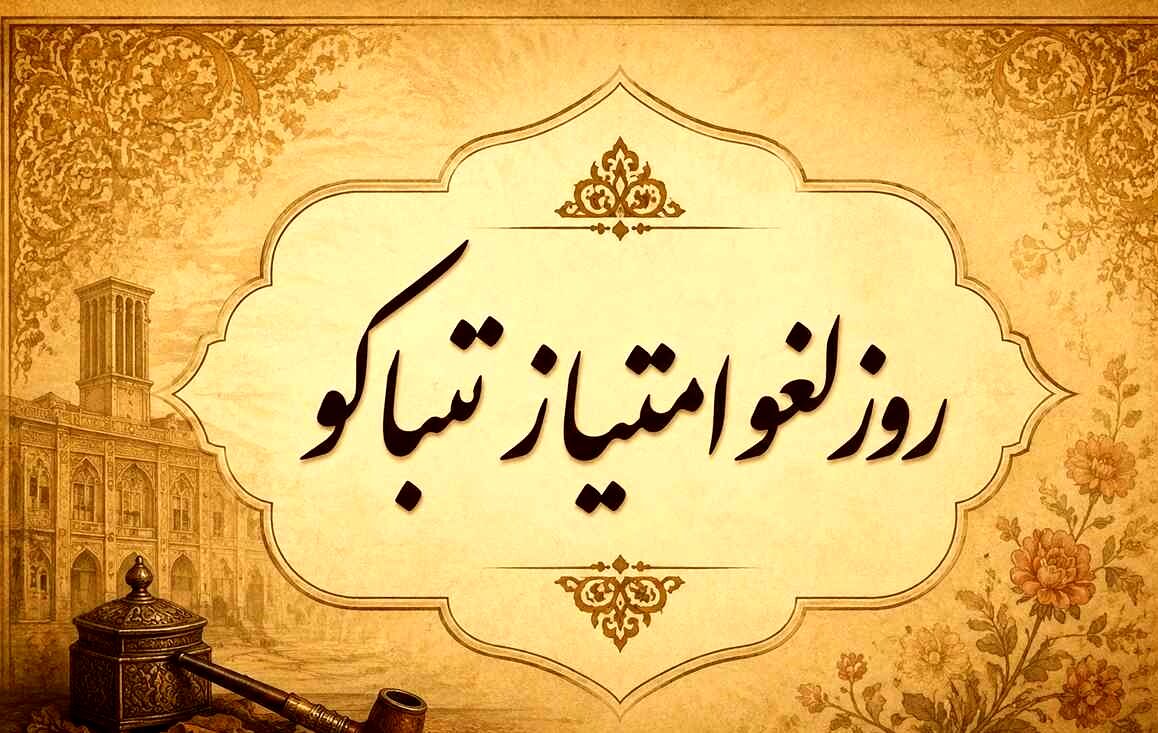 روز لغو امتیاز تنباکو